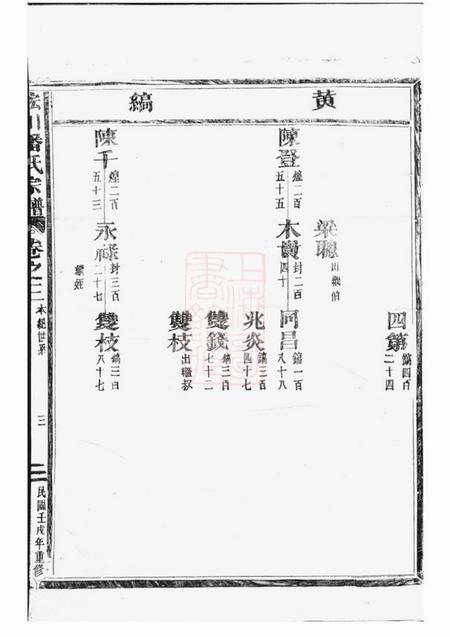 黃
縞
四第 縞四百二十四
梁聰 出繼伯
陳登 煌二百五十五
木貴 封二百四十
同昌 縞一百八十八
兆炎 縞三百四十七
雙錢 縞三百七十二
雙枝 出繼叔
陳千 煌二百五十三
永祿 封三百二十七
繼姪
雙枝 縞三百八十七
潘氏宗譜 卷之二 本紀世系
三
民國壬戌年重修